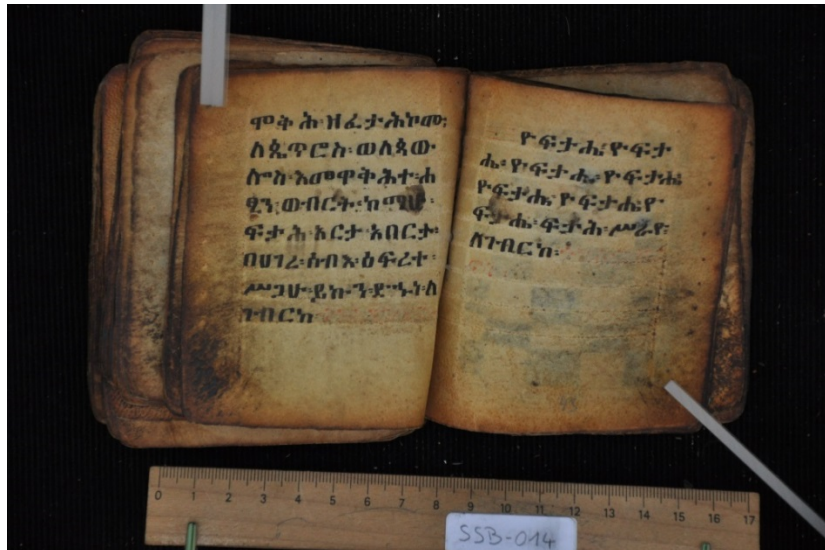 ሞቅሕ፡ዘፈታሕኮሙ፡
ለጴጥሮስ፡ወለጳው
ሎስ፡እመዋቅሕተ፡ሐ
ፂን፡ወብርት፡ከማሁ፡
ፍታሕ፡አርታ፡አበርታ፡
በሀገረ፡ሰብእ፡ዕፍረተ፡
ሥጋሁ፡ይኩን፡ደኅነ፡ለ
ገብርከ
ዮፍታሔ፡ዮፍታ
ሔ፡ዮፍታሔ፡ዮፍታሔ
ዮፍታሔ፡ዮፍታሔ፡ዮ
ፍታሔ፡ፍታሕ፡ሥራየ፡
ለገብርከ፡
0 1 2 3 4 5 6 7 8 9 10 11 12 13 14 15 16 17
SSB-014